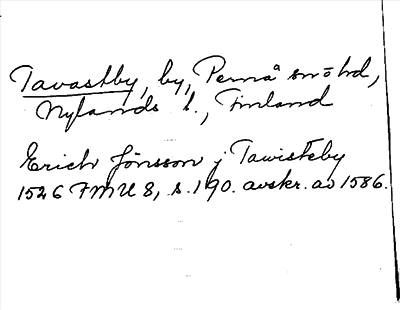 Tavastby, by, Pernå sn o hd,
Nylands l., Finland
Erich Jönsson j Tawisteby
1526 FMU 8, s. 190. avskr. av 1586.